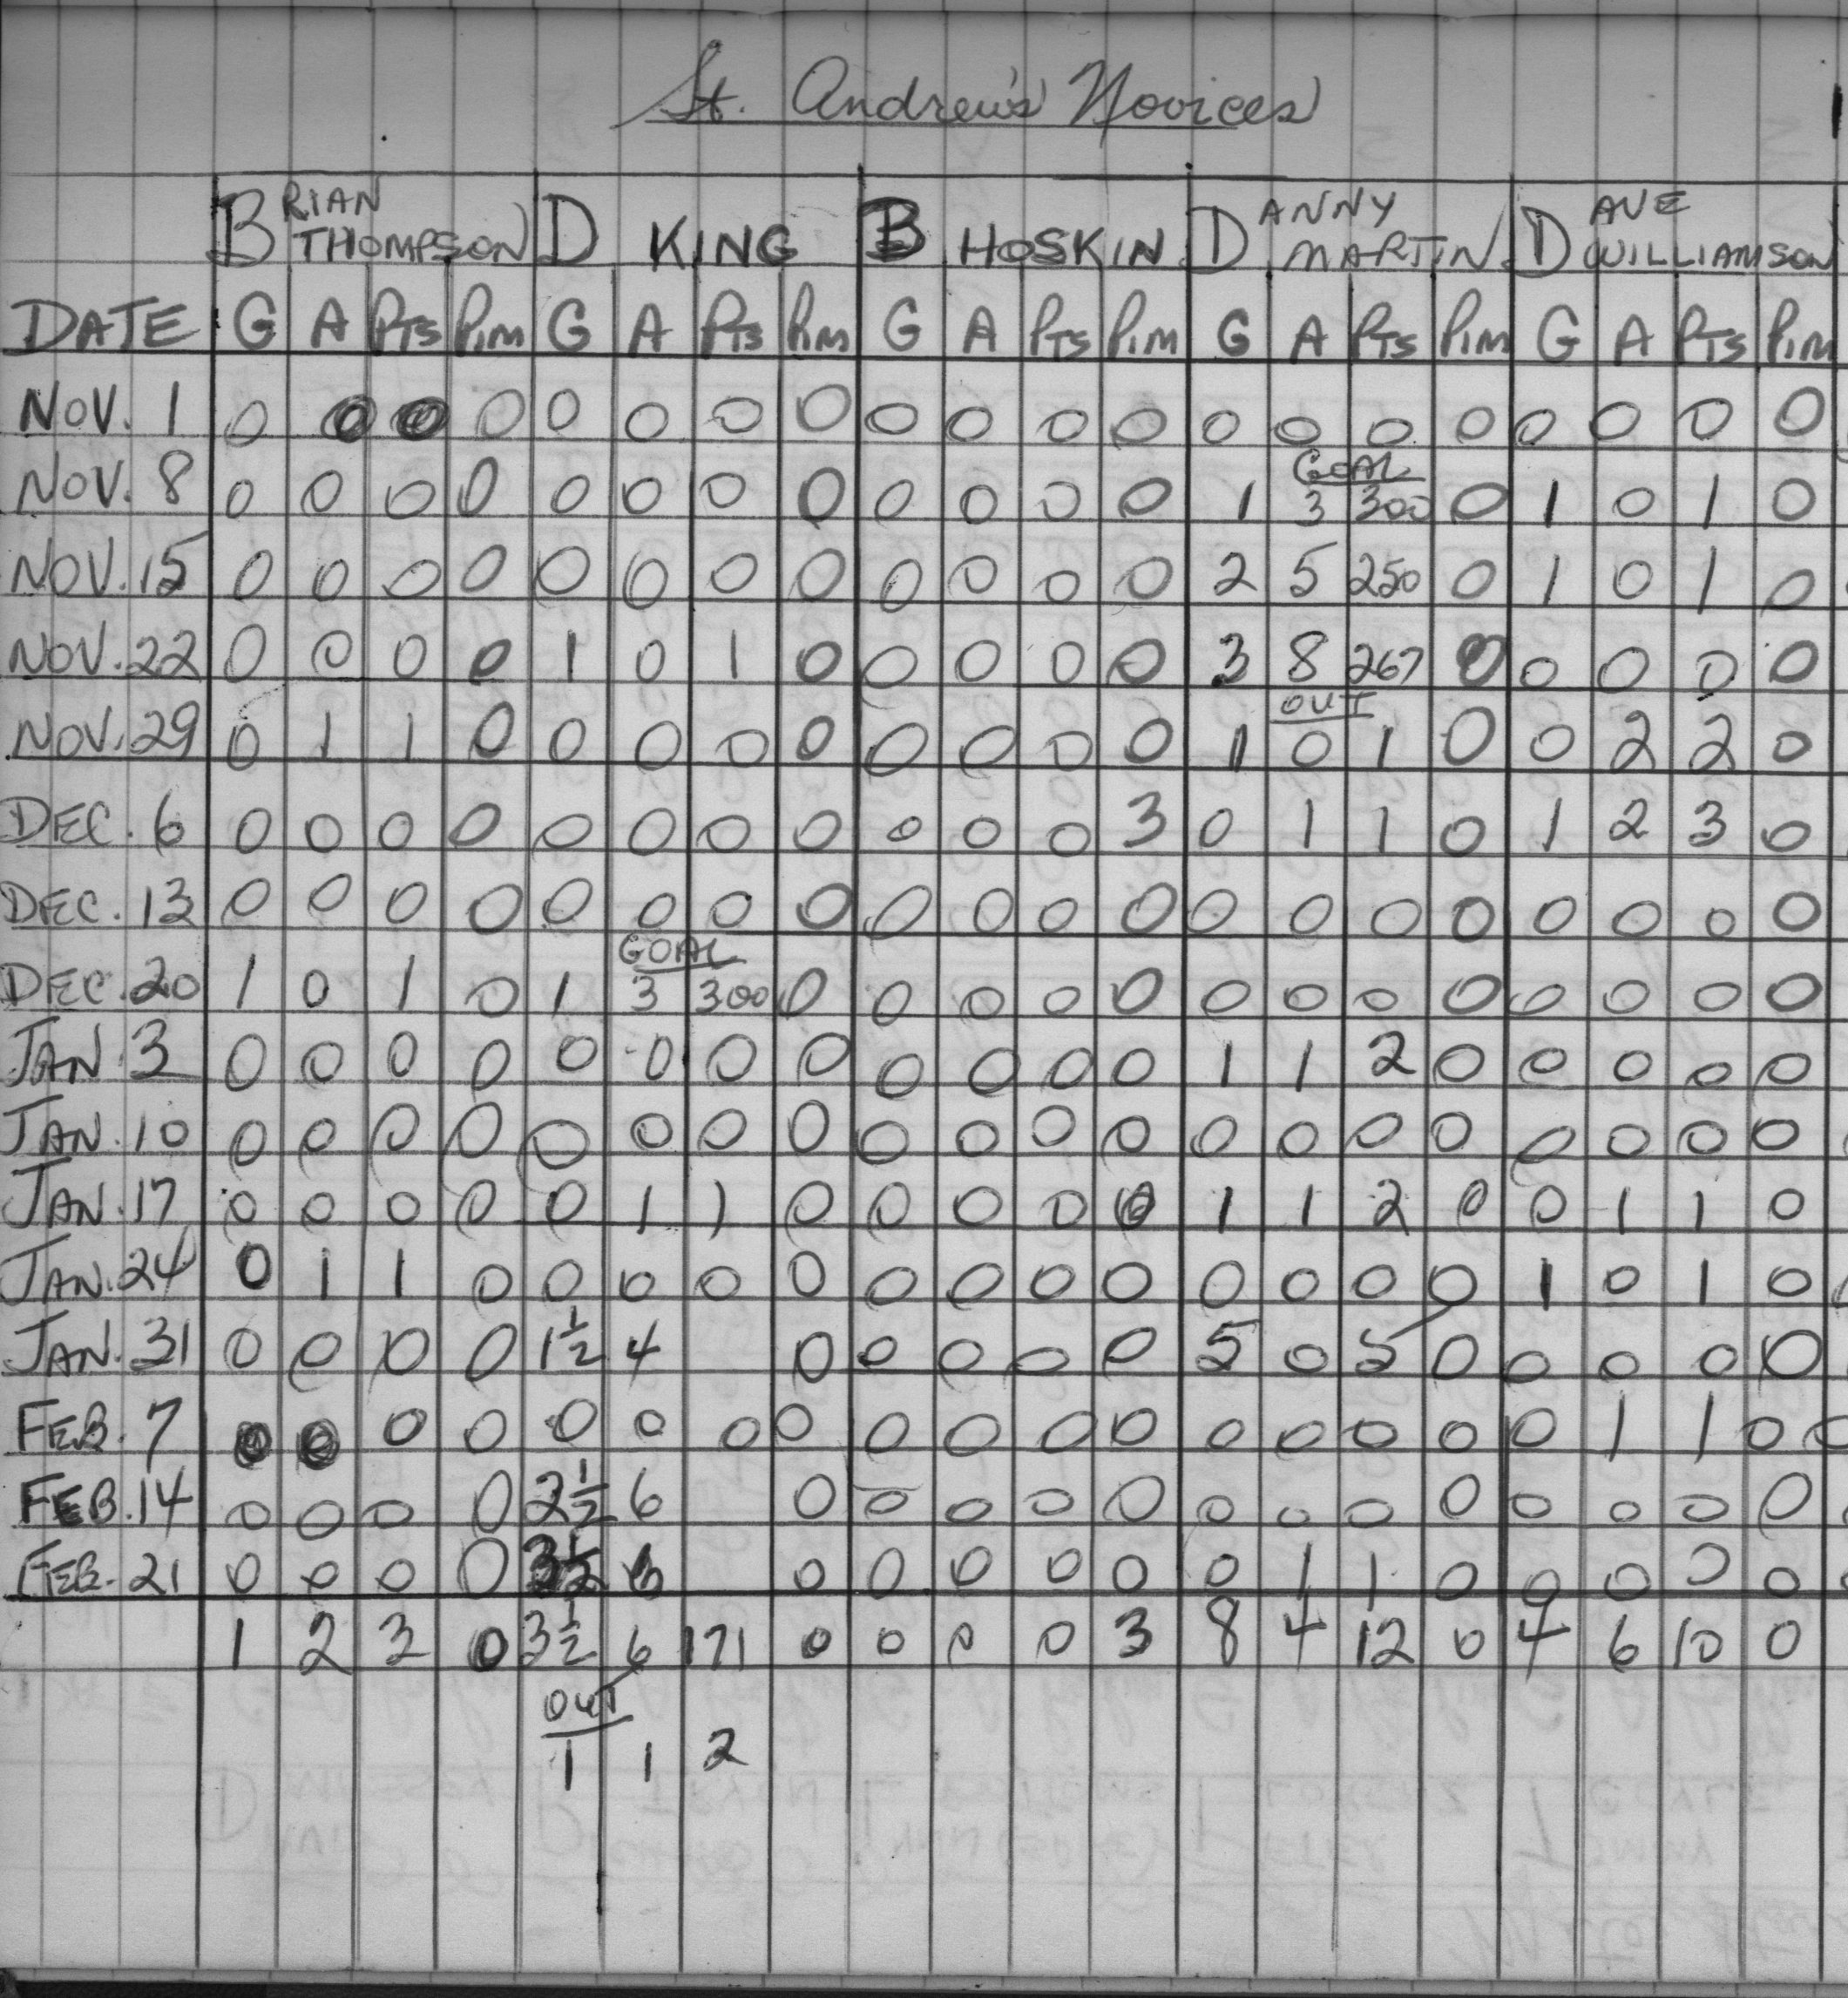 St. Andrew's Novices
BRIAN THOMPSON D KING B HOSKIN DANNY MARTIN DAVE WILLIAMSON
DATE G A PTS PIM G A PTS PIM G A PTS PIM G A PTS PIM G A PTS PIM
NOV. 1 0 0 0 0 0 0 0 0 0 0 0 0 0 0 0 0 0 0 0 0
GOAL
NOV. 8 0 0 0 0 0 0 0 0 0 0 0 0 1 3 300 0 1 0 1 0
NOV. 15 0 0 0 0 0 0 0 0 0 0 0 0 2 5 250 0 1 0 1 0
NOV. 22 0 0 0 0 1 0 1 0 0 0 0 0 3 8 267 0 0 0 0 0
OUT
NOV. 29 0 1 1 0 0 0 0 0 0 0 0 0 1 0 1 0 0 2 2 0
DEC. 6 0 0 0 0 0 0 0 0 0 0 0 3 0 1 1 0 1 2 3 0
DEC. 13 0 0 0 0 0 0 0 0 0 0 0 0 0 0 0 0 0 0 0 0
GOAL
DEC. 20 1 0 1 0 1 3 300 0 0 0 0 0 0 0 0 0 0 0 0 0
JAN. 3 0 0 0 0 0 0 0 0 0 0 0 0 1 1 2 0 0 0 0 0
JAN. 10 0 0 0 0 0 0 0 0 0 0 0 0 0 0 0 0 0 0 0 0
JAN. 17 0 0 0 0 0 1 1 0 0 0 0 0 1 1 2 0 0 1 1 0
JAN. 24 0 1 1 0 0 0 0 0 0 0 0 0 0 0 0 0 1 0 1 0
JAN. 31 0 0 0 0 1½ 4 0 0 0 0 0 5 0 5 0 0 0 0 0
FEB. 7 0 0 0 0 0 0 0 0 0 0 0 0 0 0 0 0 0 1 1 0
FEB. 14 0 0 0 0 2½ 6 0 0 0 0 0 0 0 0 0 0 0 0 0
FEB. 21 0 0 0 0 3½ 0 0 0 0 0 0 1 1 0 0 0 0 0
1 2 3 0 3½ 6 171 0 0 0 0 3 8 4 12 0 4 6 10 0
OUT
1 1 2